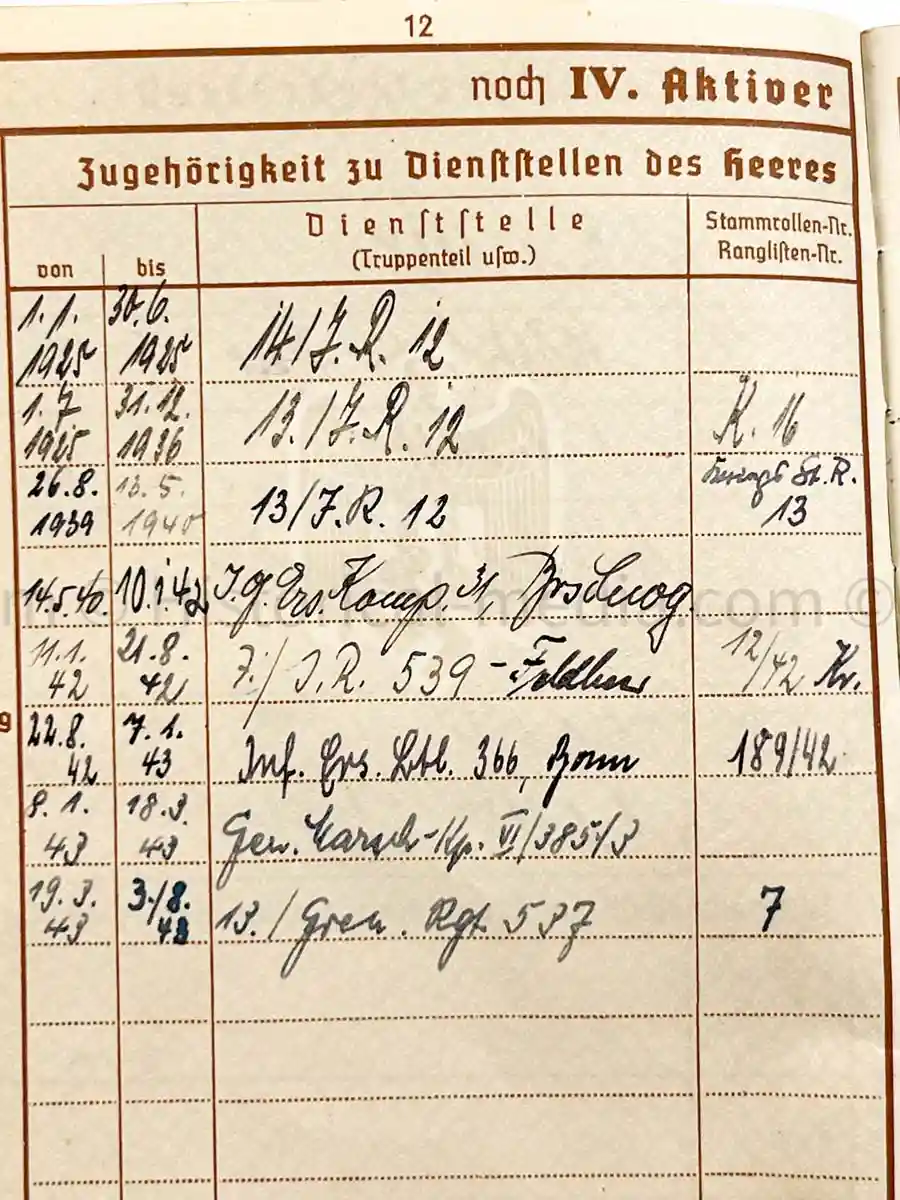 12
noch IV. Aktiver
Zugehörigkeit zu Dienststellen des Heeres
von bis
Dienststelle
(Truppenteil usw.)
Stammrollen-Nr.
Ranglisten-Nr.
1.1. 30.6.
1925 1925 14/J.R. 12
1.7 31.12.
1925 1936 13./J.R. 12 K. 16
26.8. 13.5.
1939 1940 13/J.R. 12 St. R.
13
14.5.40. 10.1.42 J.G. Ers. Komp. 31,
11.1. 21.8.
42 42 7./J.R. 539 - 12/42 Kr.
22.8. 7.1.
42 43 Inf. Ers. Btl. 366, Bonn 189/42
8.1. 18.3.
43 43 Gen. Marsch-Kp. VI/385/3
19.3. 3./8.
43 43 13./Gren. Rgt. 537 7
9